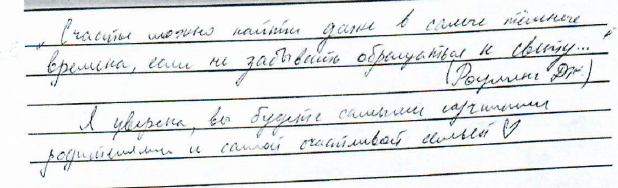 „Счастье можно найти даже в самые тёмные
времена, если не забывать обращаться к свету..."
(Роулинг Дж.)
Я уверена, вы будете самыми лучшими
родителями и самой счастливой семьёй ♡